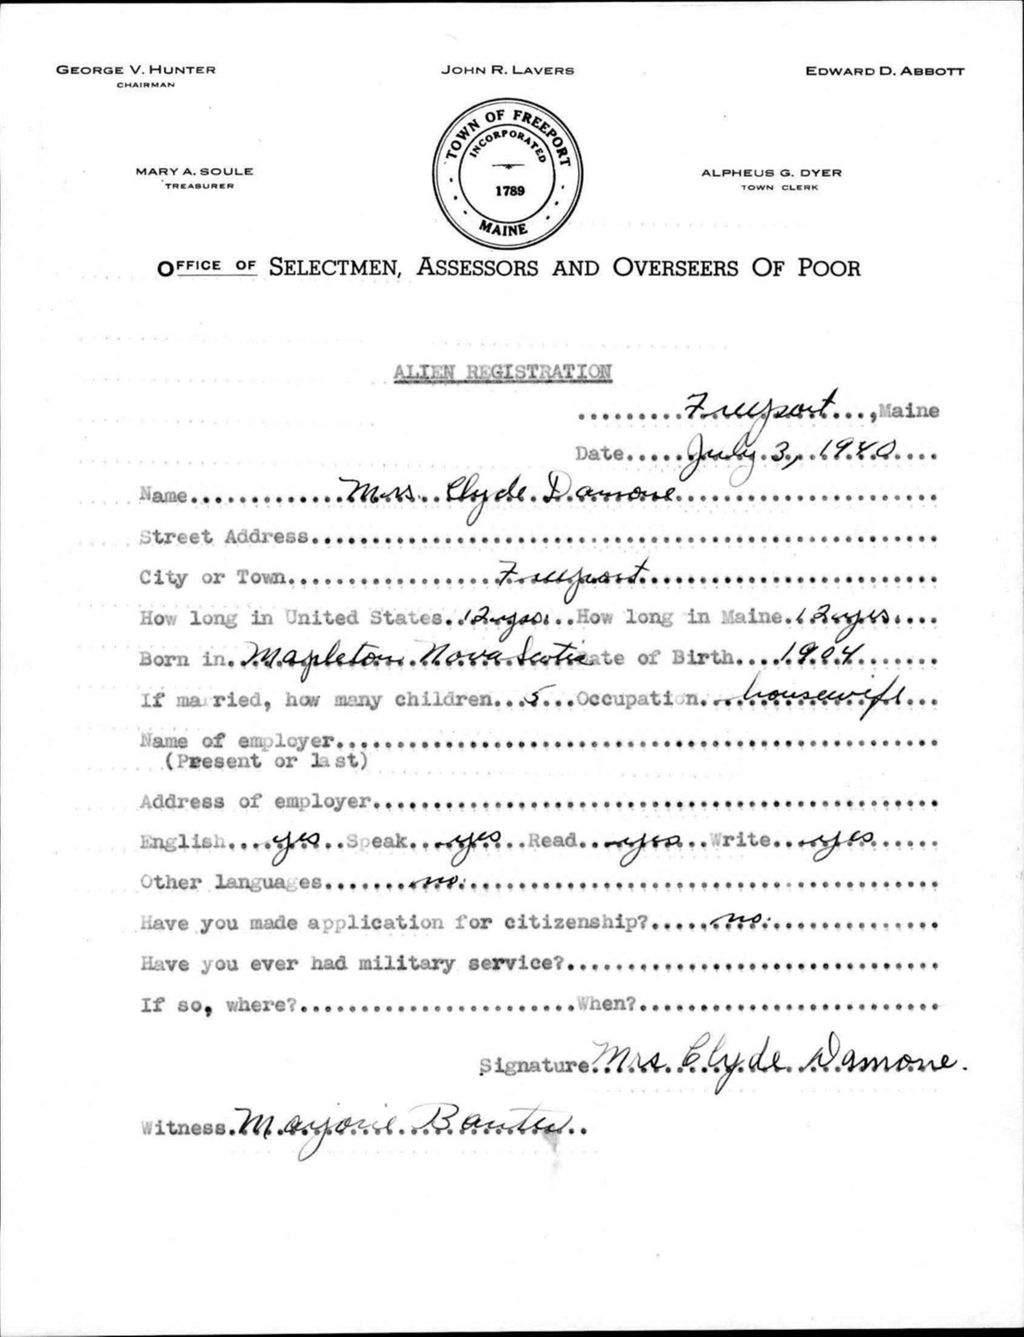 GEORGE V. HUNTER
CHAIRMAN
JOHN R. LAVERS
EDWARD D. ABBOTT
MARY A. SOULE
TREASURER
TOWN OF FREEPORT
INCORPORATED
1789
MAINE
ALPHEUS G. DYER
TOWN CLERK
OFFICE OF SELECTMEN, ASSESSORS AND OVERSEERS OF POOR
ALIEN REGISTRATION
Freeport, Maine
Date July 3, 1940
Name Mrs. Clyde Damone
Street Address
City or Town Freeport
How long in United States 12 yrs. How long in Maine 12 yrs.
Born in Mapleton Nova Scotia Date of Birth 1904
If married, how many children 5 Occupation housewife
Name of employer
(Present or last)
Address of employer
English yes Speak yes Read yes Write yes
Other languages no.
Have you made application for citizenship? no.
Have you ever had military service?
If so, where? When?
Signature Mrs. Clyde Damone.
Witness Marjorie